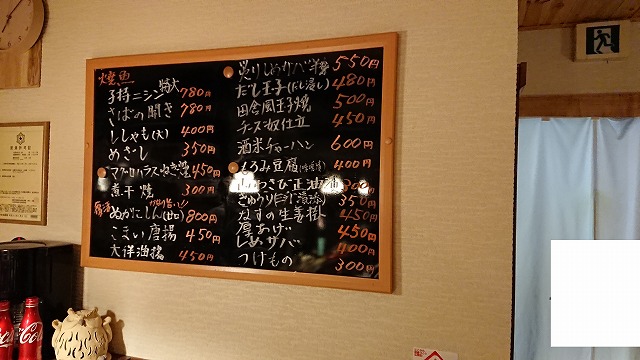 焼魚
子持ニシン 特大 780円
さばの開き 780円
ししゃも(大) 400円
めざし 300円
マグロハラスねぎ焼 450円
煮干焼 300円
ぬかにしん(甘口) 800円
こまい唐揚 450円
450円
炙りしめサバ 550円
だし玉子(だし浸し) 480円
田舎風玉子焼 500円
チーズ奴仕立 450円
酒米チャーハン 600円
もろみ豆腐 400円
山わさび正油 300円
きゅうり 350円
なすの生姜 450円
厚あげ 450円
しめサバ 400円
つけもの 300円
Coca
Coca